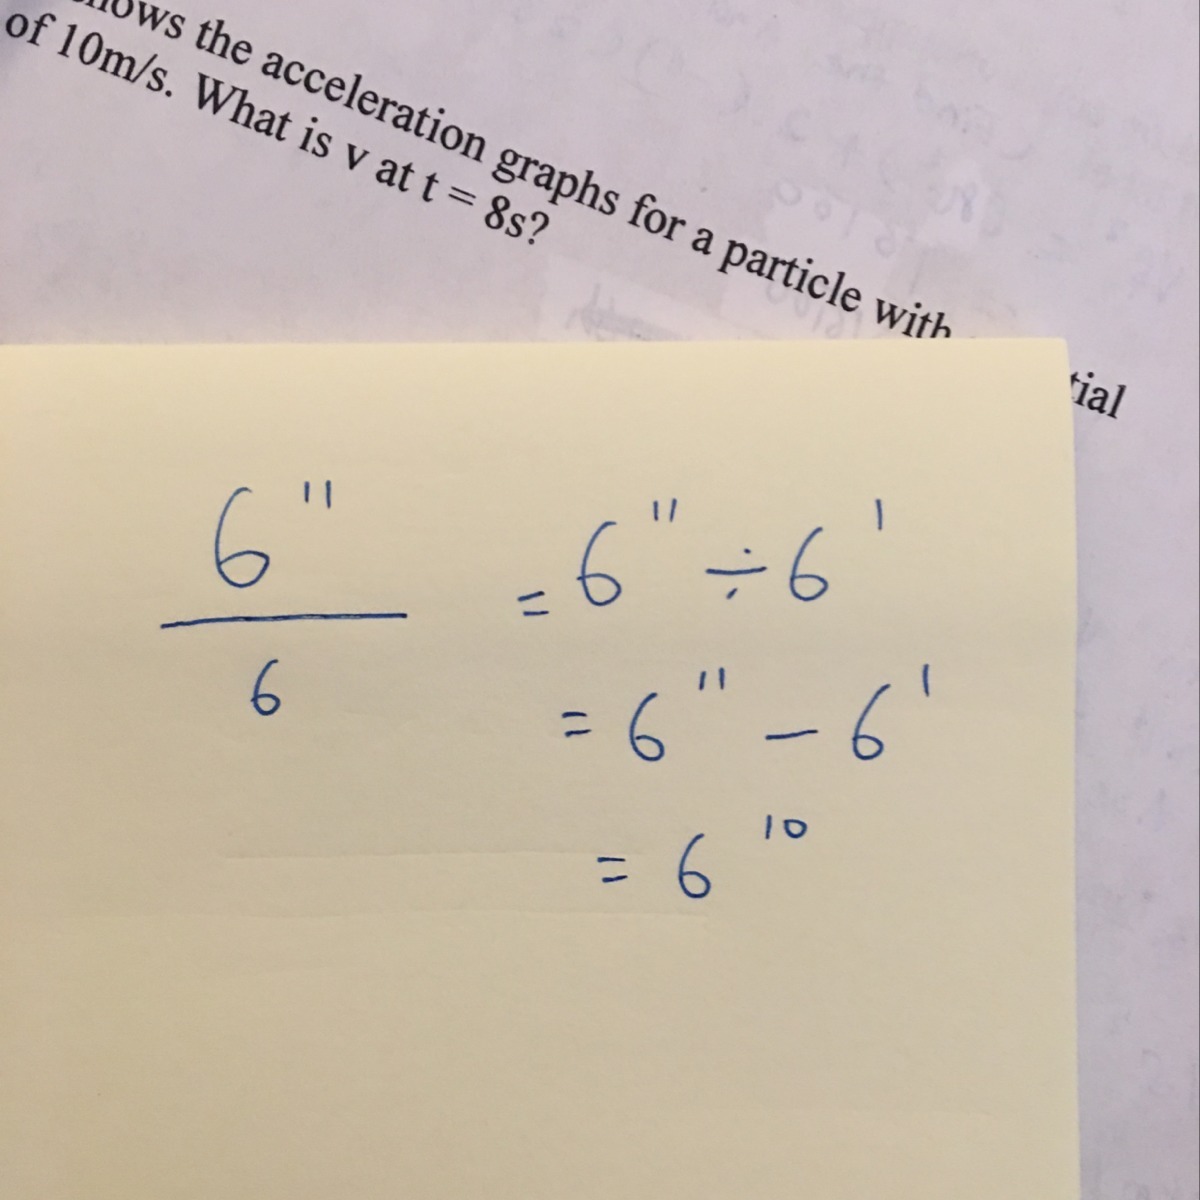 the acceleration graphs for a particle with
of 10m/s. What is v at t = 8s?
tial
6¹¹ / 6 = 6¹¹ ÷ 6¹
= 6¹¹ - 6¹
= 6¹⁰